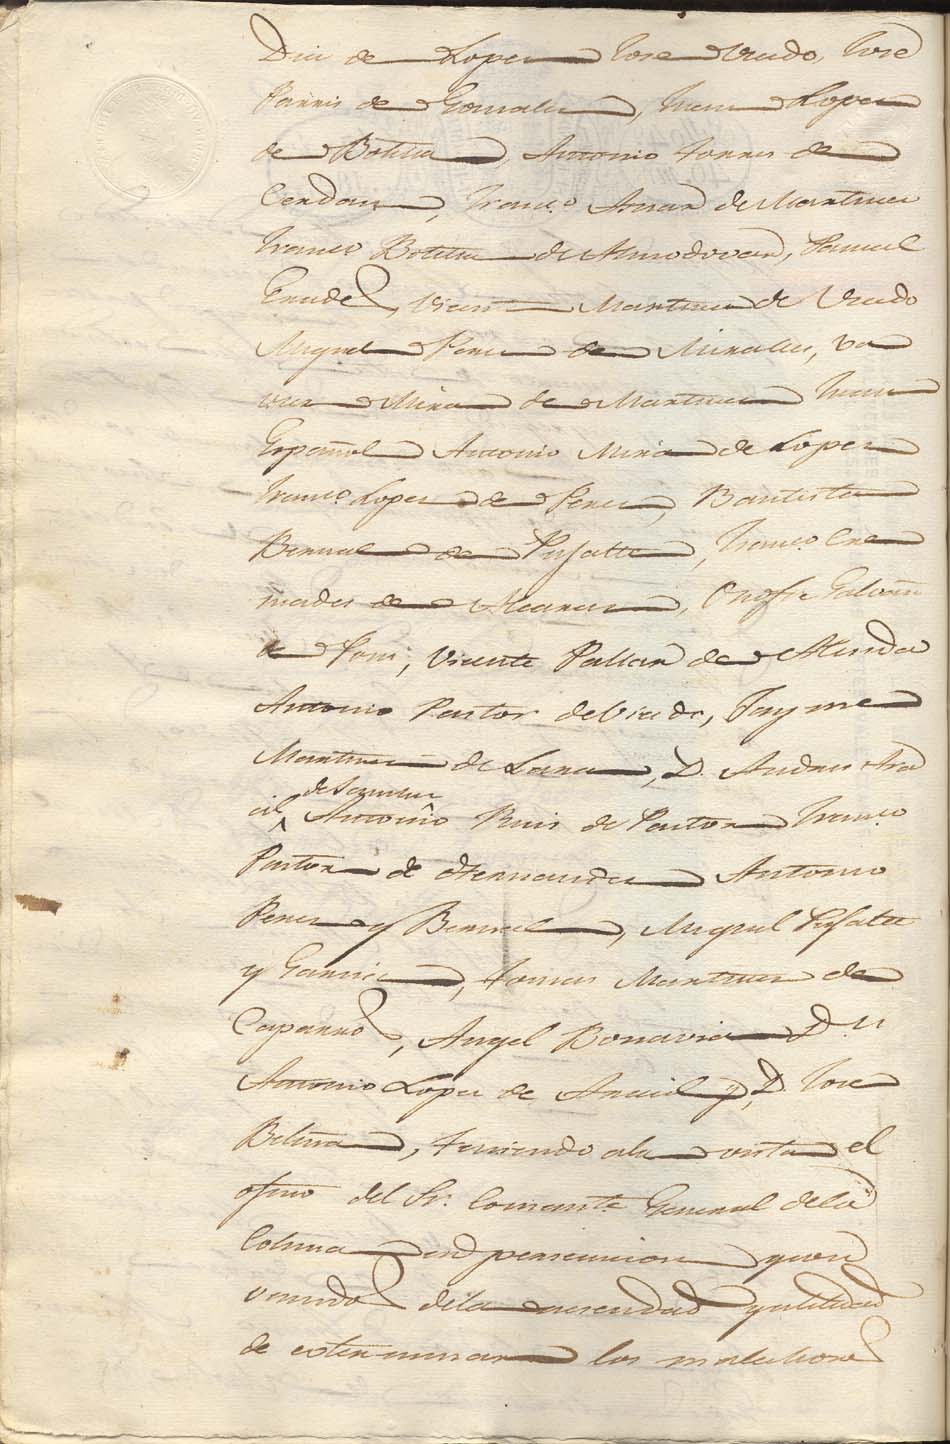 Diez de Lopez Jose Prado, Jose
Parres de Gonzalez, Juan Lopez
de Botella, Antonio Torres de
Cerdan, Franco. Aznar de Martinez
Franco Botella de Almodovar, Samuel
Vicente Martinez de Prado
Miguel Perez de Miralles, Xa
vier Mira de Martinez Juan
Español Antonio Mira de Lopez
Franco. Lopez de Perez, Bautista
Bernal de Pujalte, Franco. Cre
mades de Alcaraz, Onofre Galvañ
de Pons, Vicente Pallar de
Antonio Pastor de Prado, Jayme
Martinez de Lara, D. Andres Ara
cil de Antonio Ruis de Pastor Franco
Pastor de Hernandez Antonio
Perez y Bernal, Miguel Pujalte
y Garcia, Tomas Martinez de
Caparros, Angel Bonavia D.n
Antonio Lopez de Aracil y D. Jose
Beltran, teniendo ala vista el
oficio del Sr. Comante. General dela
Coluna en persecucion y con
vencidos dela necesidad y utilidad
de exterminar los malechores